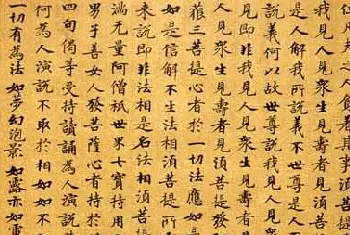 凡夫之人貪著其事須
人見眾生見壽者見須
是人解我所說義不世尊是人
說義何以故世尊說我見人見
即非我見人見眾生見壽者見
人見眾生見壽者見須菩提發
藐三菩提心者於一切法應如是
如是信解不生法相須菩提所
來說即非法相是名法相須菩提
滿无量阿僧祇世界七寶持用
男子善女人發菩薩心者持於
四句偈等受持讀誦為人演說
何為人演說不取於相如如不
一切有為法如夢幻泡影如露亦如電